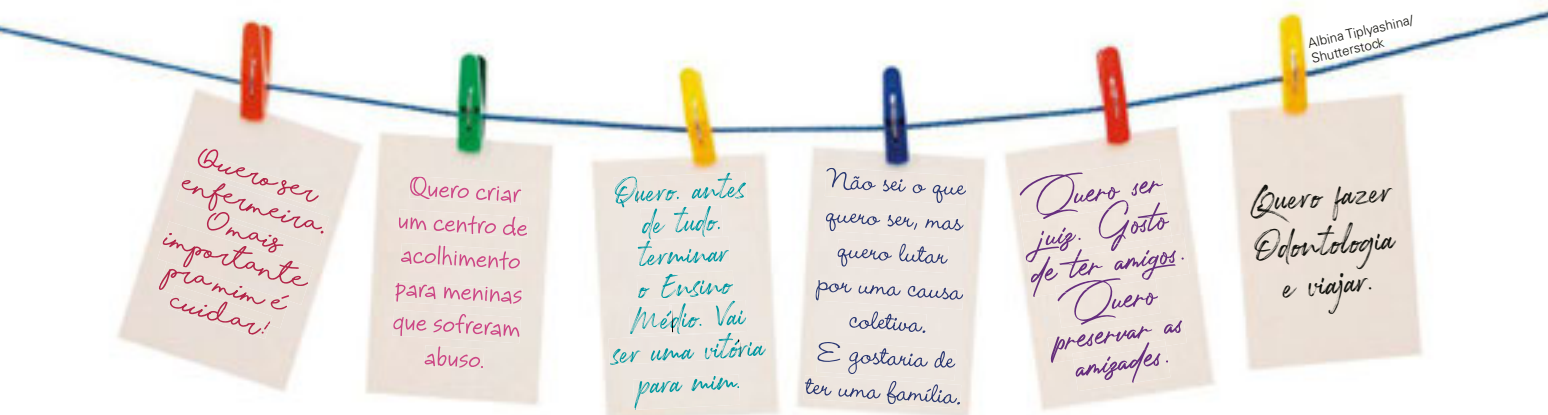 Albina Tiplyashina/
Shutterstock
Quero ser
enfermeira.
O mais
importante
pra mim é
cuidar!
Quero criar
um centro de
acolhimento
para meninas
que sofreram
abuso.
Quero. antes
de tudo.
terminar
o Ensino
Médio. Vai
ser uma vitória
para mim.
Não sei o que
quero ser, mas
quero lutar
por uma causa
coletiva.
E gostaria de
ter uma família.
Quero ser
juiz. Gosto
de ter amigos.
Quero
preservar as
amizades.
Quero fazer
Odontologia
e viajar.